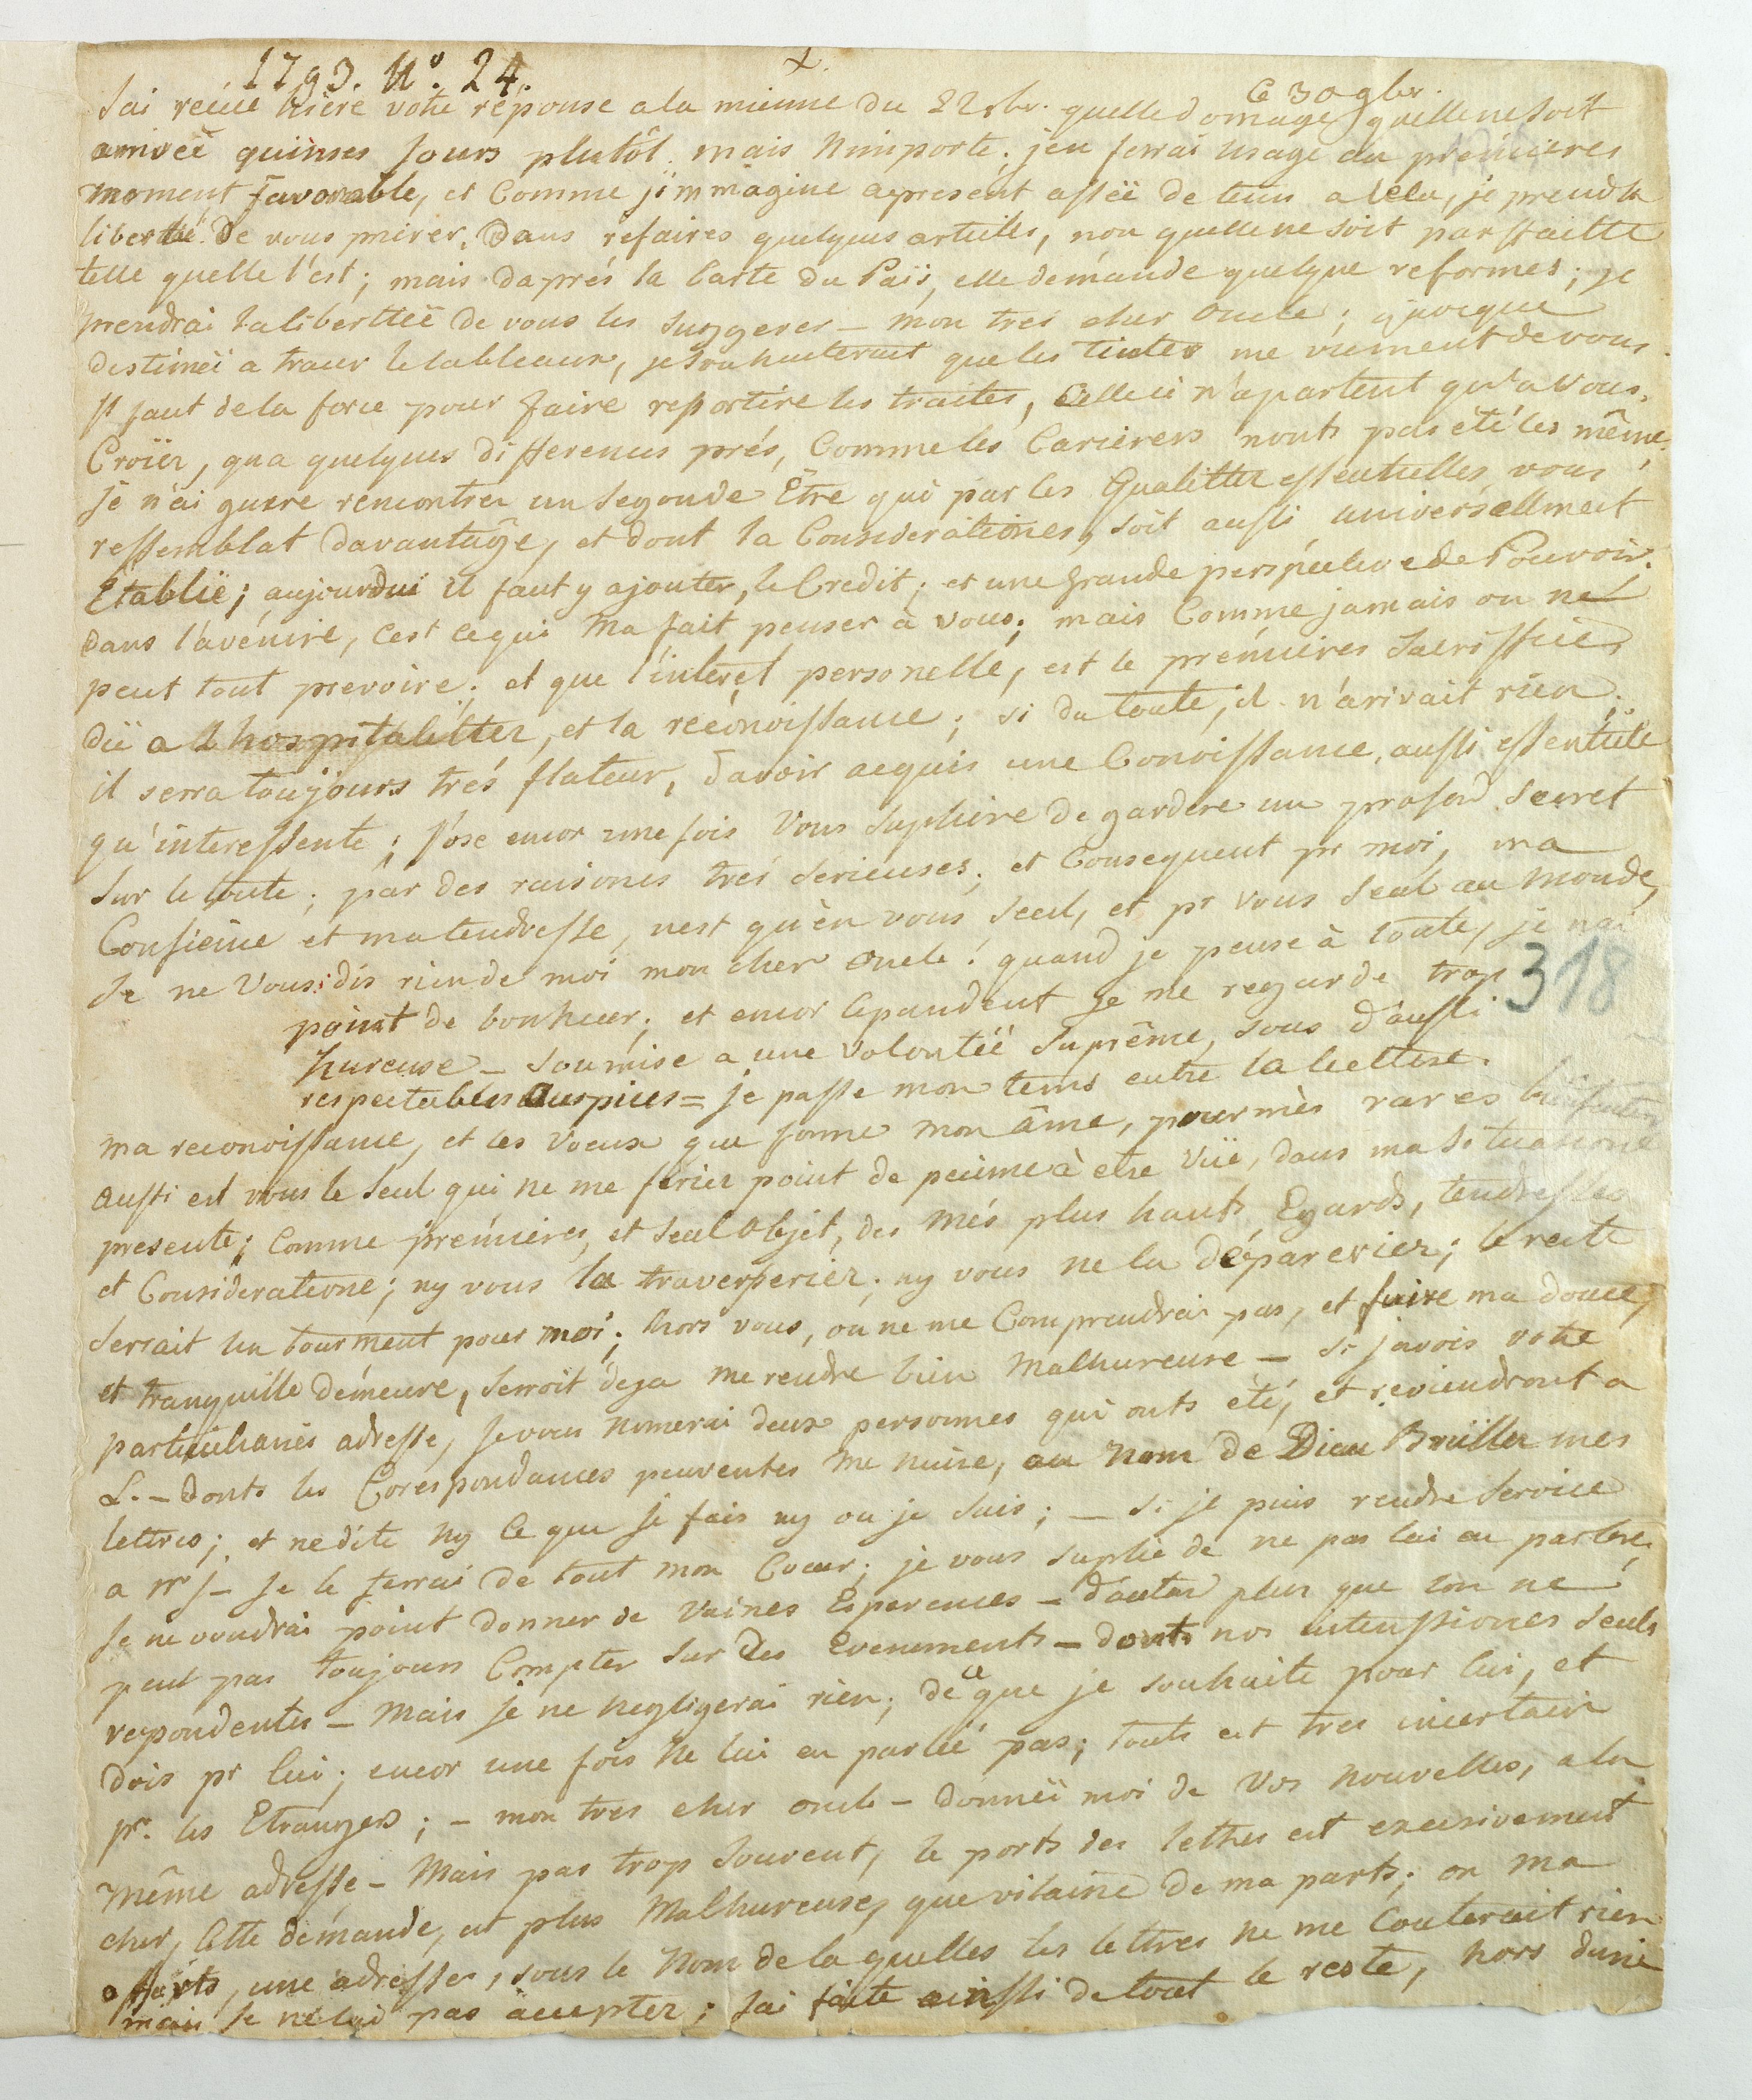 1793. N.º 24.
x.
Ce 30 9br.
J'ai recüe hiere votre réponse a la mienne du 22 8br. quelle domage quelle ne soit
arrivéë quinses jours plutôt. mais N'importe; j'en ferrai usage au prémieres
moment favorable, et comme j'immagine apresent assëë de tems a cela, je prend la
libertéé de vous prier, dans refaires quelques articles, non quelle ne soit parffaitte
telle quelle l'est; mais daprés la Carte du Païs, elle demande quelque reformes; je
prendrai la liberttéë de vous les suggerer — mon tres cher oncle; quoique
destinéë a tracer le tableaux, je souhaiterait que les teintes me viennent de vous.
Il faut de la force pour faire resortire les traites, celle ci n'apartent qu'a vous.
Croïer, qu'a quelques differences prés, comme les Carierers nonts pas été les même
je n'ai guere rencontrer un segonde Être qui par les Qualitter essentielles, vous
ressemblat davantage, et dont la Considerationes, soit aussi universellment
Etablië; aujourdui il faut y ajouter, le Credit; et une grande perspective de Pouvoir.
dans l'avénire, C'est ce qui m'a fait penser à vous; mais comme jamais on ne
peut tout prevoire; et que l'interet personelle, est le prémieres sacriffice
dü a l'hospitalitter, et la recónoissance; si du toute, il n'arivait rien,
il serra toujours trés flateur, d'avoir acquis une Conoissance, aussi essentiele
qu'interessente; J'ose encor une fois vous supliere de gardere un profond secret
sur le toute; par des raisones trés serieuses; et Consequent pr moi, ma
Confience et ma tendresse, n'est qu'en vous seul, et pr vous seul au monde,
Je ne vous dis rien de moi mon cher oncle! quand je pense à toute, je n'ai
point de bonheur; et encor cepandent je me regarde trop
hureuse — soumise a une volontéë suprême, sous d'aussi
respectables auspices = je passe mon tems entre la lecttere.
318
ma reconoissance, et les voeux que forme mon âme, pour mès rares bienfaiteur
aussi est vous le seul qui ne me ferier point de peeime à etre vüe, dans ma situasione
presente; comme prémieres, et seul objet, des més plus hauts Egards, tendresses
et Consideratione; ny vous la traverserier; ny vous ne la dépaererier; le reste
serrait un tourment pour moi; hors vous, on ne me Comprendrai pas, et fuire ma douce,
et tranquille démeure, serroit deja me rendre bien malhureuse — si j'avois votre
particulieres adresse, je vous nomerai deux personnes qui onts été, et reviendront a
L. — donts les Corespondances peuventes me nuire, au nom de Dieu Brüller mes
lettres; et ne dite ny ce que je fais ny ou je suis; — si je puis rendre service
a Mr J — je le ferrai de tout mon Coeur; je vous suplie de ne pas lui en parlere,
je ne voudrai point donner de vaines Esperences — d'autan plus que l'on ne
peut pas toujours Compter sur des Evenements — donts nos intenssiones seuls
repondentes — mais je ne negligerai rien; de ce que je souhaite pour lui, et
dois pr lui; encor une fois ne lui en parlé pas; touts est tres incertain
pr. les Etrangers; — mon tres cher oncle — donnéë moi de vos nouvelles, a la
même adresse — mais pas trop souvent, le ports des lettres est excesivement
cher, Cette démande, est plus malhureuse, que vilaine de ma parts; on m'a
offerts, une adresse, sous le nom de la quelles les lettres ne me Couterait rien
mais je ne l'ai pas accepter; J'ai faite ainssi de tout le reste, hors d'une